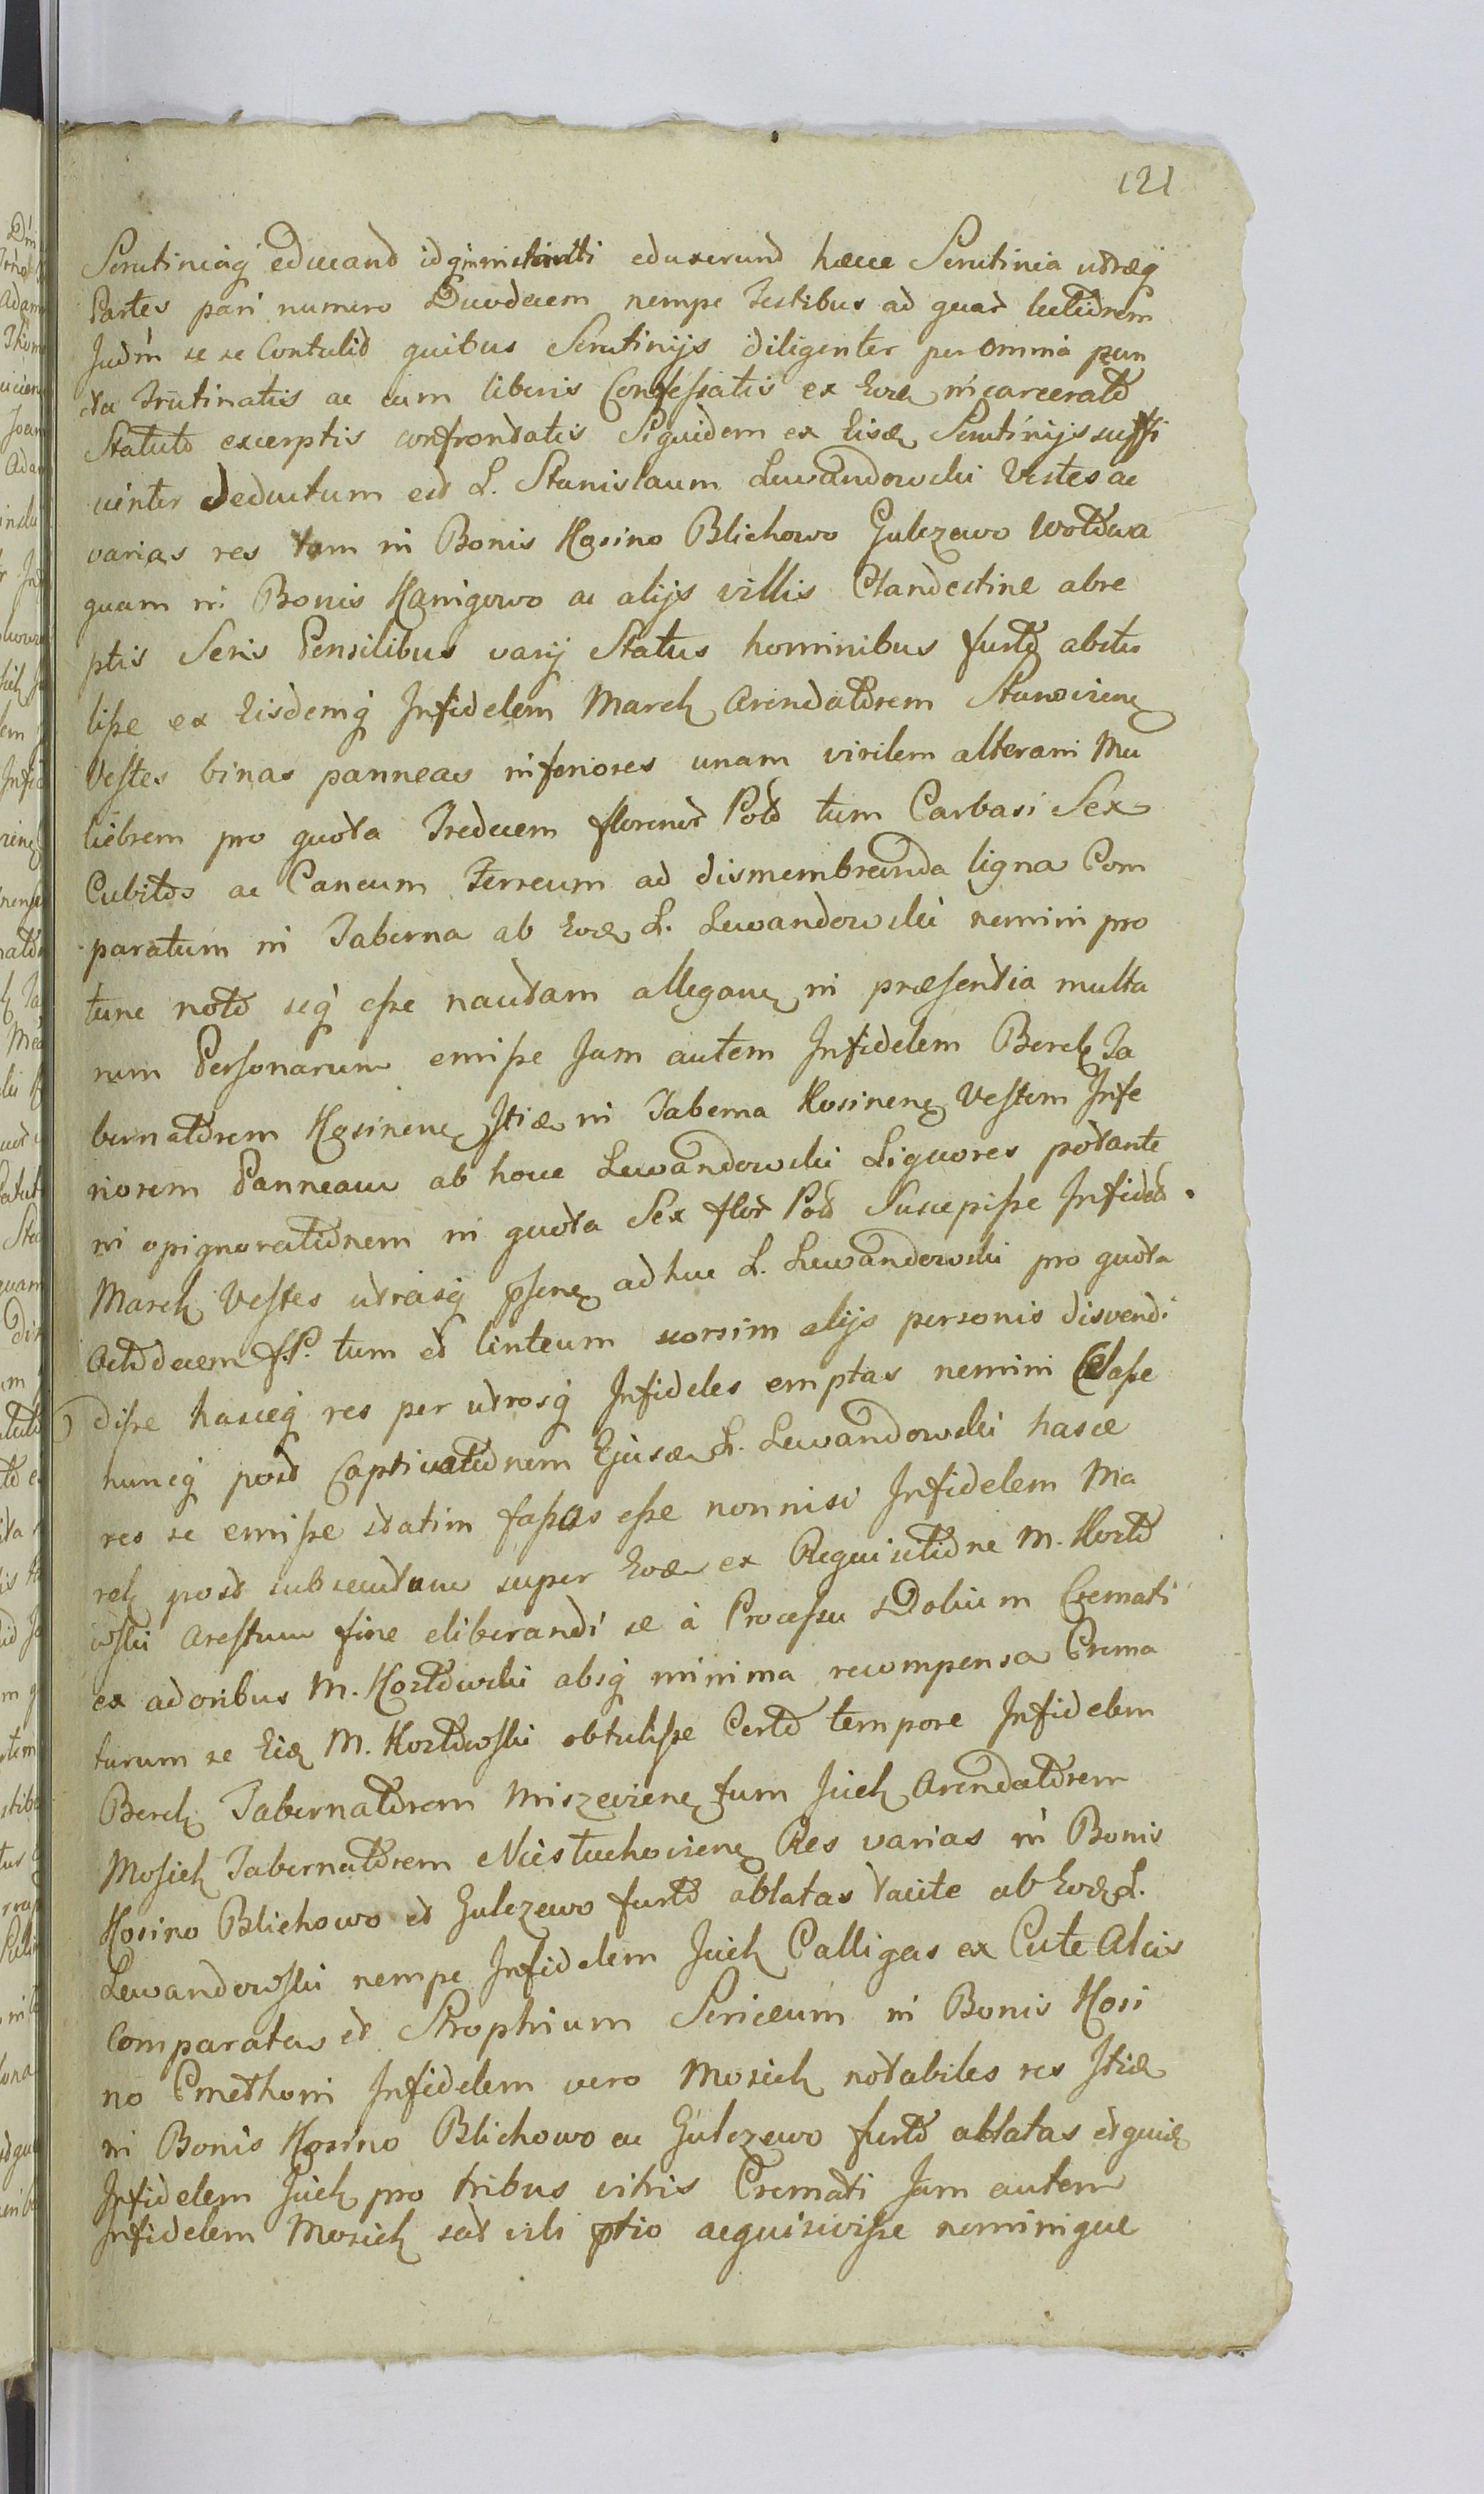 121
Scrutiniaq̀ educand id eduxerund hæcce Scrutinia utræq̀
Partes pari numero Duodecem nempe Testibus ad quar lectionem
Judm se se Contulit quibus Scrutinijs diligenter per omnia pun
cta Trutinatis ac cum liberis Confessatis ex Eoda incarcerato
Statuto excerptis confrontatis Siquidem ex Eisd Scrutinijs suffi
cienter deductum est L. Stanislaum Lewandowski Vestes ac
varias res tam in Bonis Kosino Blichowo Gulczewo Wotowa
quam in Bonis Kanigowo ac alijs villis Clandestine abre
ptis Seris Pensilibus varij Status hominibus furto abstu
lisse ex Eisdemq̀ Infidelem Marek Arendatorem Stanoviens
Vestes binas panneas inferiores unam virilem alteram Mu
liebrem pro quota Tredecem florenor Pol tum Carbasi Sex
Cubitos ac Caneum Ferreum ad dismembranda ligna Com
paratum in Taberna ab Eod L. Lewandowski nemini pro
tunc noto seq̀ esse nautam allegane in præsentia multa
rum Personarum emisse Jam autem Infidelem Berek Ta
bernatorem Kosinens Itid in Taberna Kosinens Vestem Infe
riorem Panneam ab hocce Lewandowski Liquores potante
in opignorationem in quota Sex flor Pol Suscepisse Infidel
Marek Vestes utrasq̀ psens adhuc L. Lewandowski pro quota
Octodecem fP. tum et linteum seorsim alijs personis disvendi
disse hasceq̀ res per utrosq̀ Infideles emptas nemini Celasse
huncq̀ post Captivationem Ejusd L. Lewandowski hasce
res se emisse statim fassos esse nonnisi Infidelem Ma
rek post subsecutum super Eod ex Requisitione M. Kozto
wski Arestum fine eliberandi se à Processu Dolium Cremati
ex adoribus M. Koztowski absq̀ minima recompensa Crema
turum se Eid M. Koztowski obtulisse Certo tempore Infidelem
Berek Tabernatorem Miszeviens tum Jcek Arendatorem
Mosiek Tabernatorem Niestuchoviens Res varias in Bonis
Kosino Blichowo et Gulczewo furto ablatas tacite ab Eod L.
Lewandowski nempe Infidelem Jcek Calligas ex Cute Alcis
Comparatas et Strophium Sericeum in Bonis Kosi
no Cmethoni Infidelem vero Mosiek notabiles res Itid
in Bonis Kosino Blichowo ac Gulczewo furto ablatas etquid
Infidelem Jcek pro tribus vitris Cremati Jam autem
Infidelem Mosiek sat vili ptio acquisivisse neminique